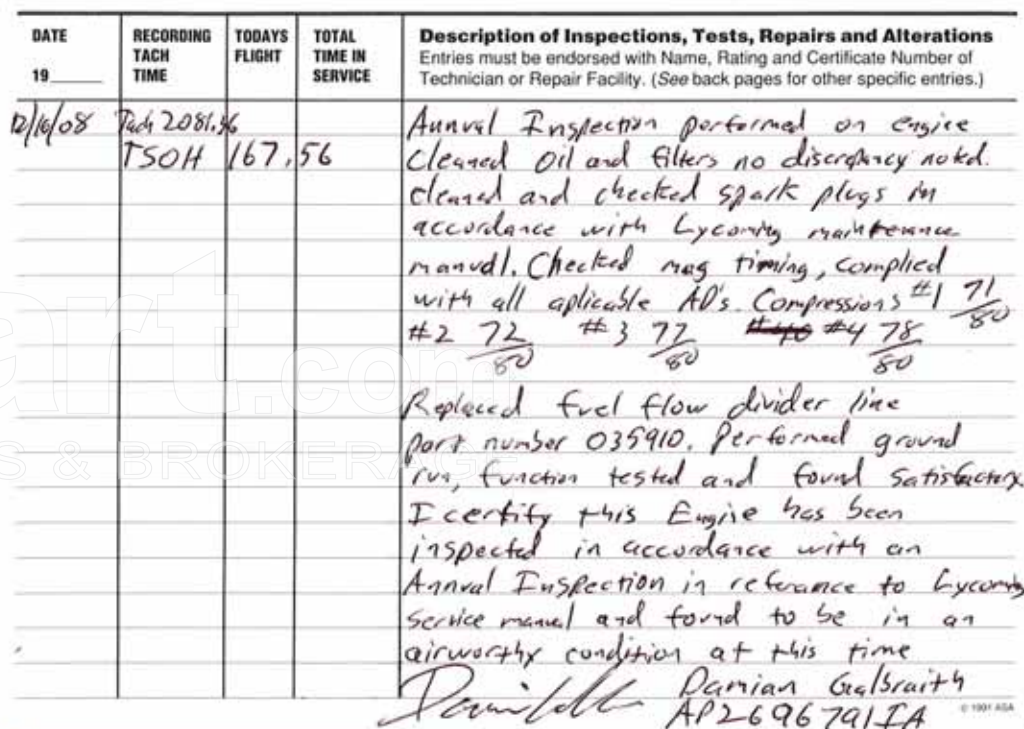 DATE
19
RECORDING
TACH
TIME
TODAYS
FLIGHT
TOTAL
TIME IN
SERVICE
Description of Inspections, Tests, Repairs and Alterations
Entries must be endorsed with Name, Rating and Certificate Number of
Technician or Repair Facility. (See back pages for other specific entries.)
12/16/08 Tach 2081.96 Annual Inspection performed on engine
TSOH 167.56 Cleaned Oil and filters no discrepancy noted.
cleaned and checked spark plugs in
accordance with Lycoming maintenance
manual. Checked mag timing, complied
with all aplicable AD's. Compressions #1 71/80
#2 72/80 #3 77/80 #4 78/80
Replaced fuel flow divider line
part number 035910. Performed ground
run, function tested and found satisfactory
I certify this Engine has been
inspected in accordance with an
Annual Inspection in reference to Lycoming
Service manual and found to be in an
airworthy condition at this time
Damian Galbraith
AP2696791IA
© 1991 ASA
art.com
S & BROKERAG